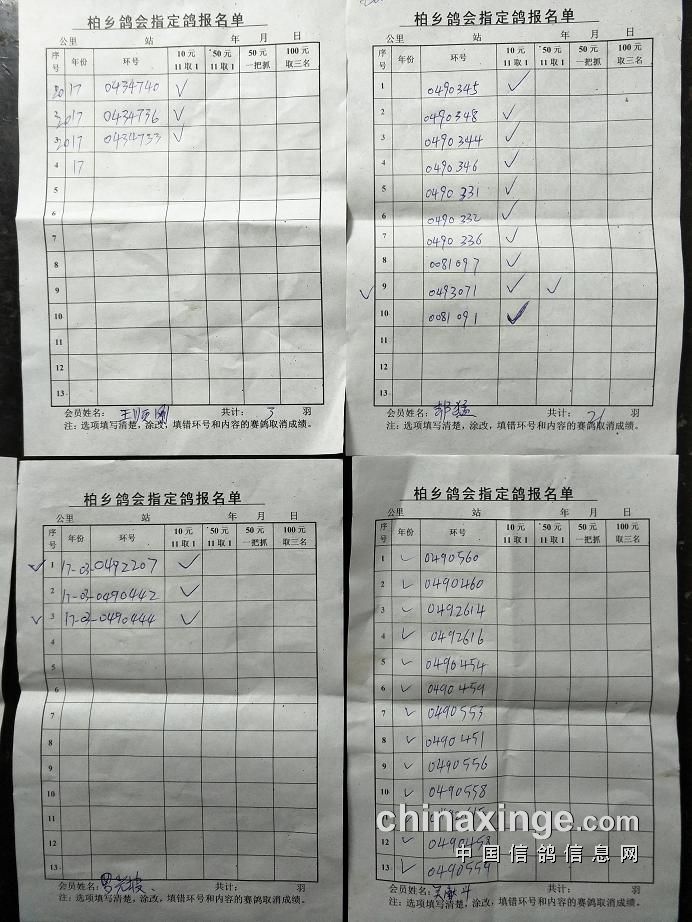 柏乡鸽会指定鸽报名单
公里 站 年 月 日
序号 年份 环号 10元 11取1 50元 11取1 50元 一把抓 100元 取三名
2017 0434740 ✓
2017 0434736 ✓
2017 0434733 ✓
4 17
5
6
7
8
9
10
11
12
13
会员姓名: 共计: 3 羽
注:选项填写清楚,涂改,填错环号和内容的赛鸽取消成绩。
柏乡鸽会指定鸽报名单
公里 站 年 月 日
序号 年份 环号 10元 11取1 50元 11取1 50元 一把抓 100元 取三名
1 0490345 ✓
2 0490348 ✓
3 0490344 ✓
4 0490346 ✓
5 0490331 ✓
6 0490332 ✓
7 0490336 ✓
8 0081097 ✓
✓ 9 0493071 ✓ ✓
10 0081091 ✓
11
12
13
会员姓名: 郭猛 共计: 21 羽
注:选项填写清楚,涂改,填错环号和内容的赛鸽取消成绩。
柏乡鸽会指定鸽报名单
公里 站 年 月 日
序号 年份 环号 10元 11取1 50元 11取1 50元 一把抓 100元 取三名
✓ 1 17-03-0492207 ✓
2 17-03-0490442 ✓
✓ 3 17-03-0490444 ✓
4
5
6
7
8
9
10
11
12
13
会员姓名: 共计: 羽
注:选项填写清楚,涂改,填错环号和内容的赛鸽取消成绩。
柏乡鸽会指定鸽报名单
公里 站 年 月 日
序号 年份 环号 10元 11取1 50元 11取1 50元 一把抓 100元 取三名
1 ✓ 0490560
2 ✓ 0490460
3 ✓ 0492614
4 ✓ 0492616
5 ✓ 0490454
6 ✓ 0490459
7 ✓ 0490553
8 ✓ 0490451
9 ✓ 0490556
10 ✓ 0490558
11
12 ✓
13 ✓ 0490559
会员姓名: 共计: 羽
注:选项填写清楚,涂改,填错环号和内容的赛鸽取消成绩。
chinaxinge.com
中国信鸽信息网